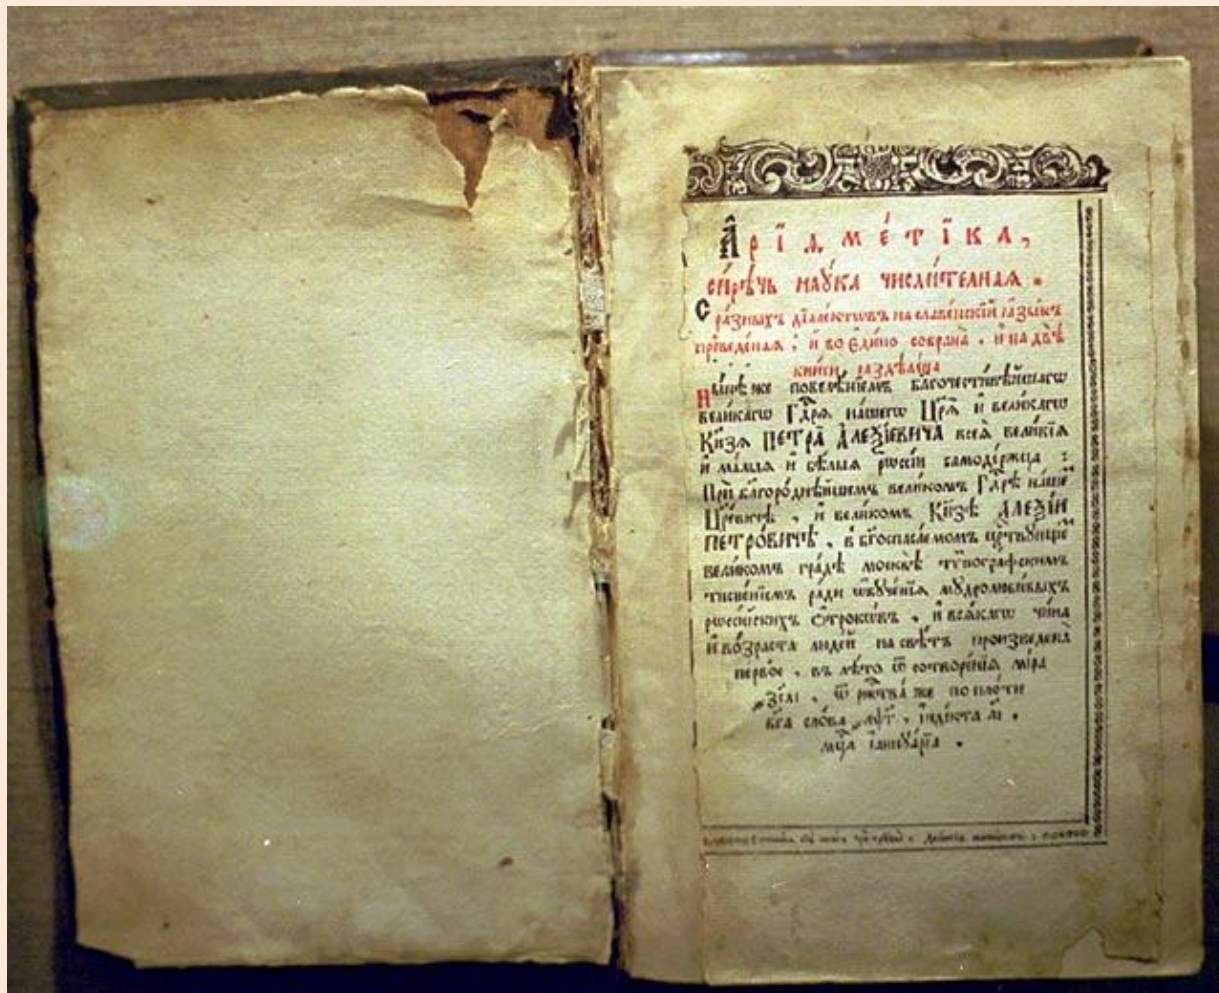 А҆рїѳме́тїка,
си́рѣчь наꙋ́ка числи́телнаѧ.
С ра́зныхъ дїале́ктѡвъ на славе́нскїй ꙗ҆зы́къ
преведе́наѧ, и҆ во є҆ди́но собрана̀, и҆ на двѣ̀
кни̑ги раздѣлена̀
Нн҃ѣ же повелѣ́нїемъ благочести́вѣйшагѡ
вели́кагѡ Гдⷭ҇рѧ на́шегѡ Цр҃ѧ̀ и҆ вели́кагѡ
Кнѧ́зѧ ПЕТРА̀ А҆ЛЕѮІ́ЕВИЧА всеѧ̀ вели́кїѧ
и҆ ма́лыѧ и҆ бѣ́лыѧ рѡссі́и самоде́ржца:
Прѝ благоро́днѣйшемъ вели́комъ Гдⷭ҇рѣ на́шемъ
Цр҃е́вичѣ, и҆ вели́комъ Кнѧ́зѣ А҆ЛЕѮІ́И
ПЕТРО́ВИЧѢ, в бг҃оспаса́емомъ црⷭ҇твꙋющемъ
вели́комъ гра́дѣ москвѣ̀ тѷпогра́фскимъ
тисне́нїемъ ра́ди ѡ҆бꙋче́нїѧ мꙋдролюби́выхъ
рѡссі́йскихъ ѻ҆́трокѡвъ, и҆ всѧ́кагѡ чи́на
и҆ во́зраста люде́й на свѣ́тъ произведена̀
пе́рвое, въ лѣ́то ѿ сотворе́нїѧ мі́ра
҂зс҃аі, ѿ рождⷭ҇тва̀ же по пло́ти
бг҃а сло́ва ҂аѱ҃г, і҆ндї́кта а҃і,
мцⷭ҇а і҆аннꙋа́рїа.